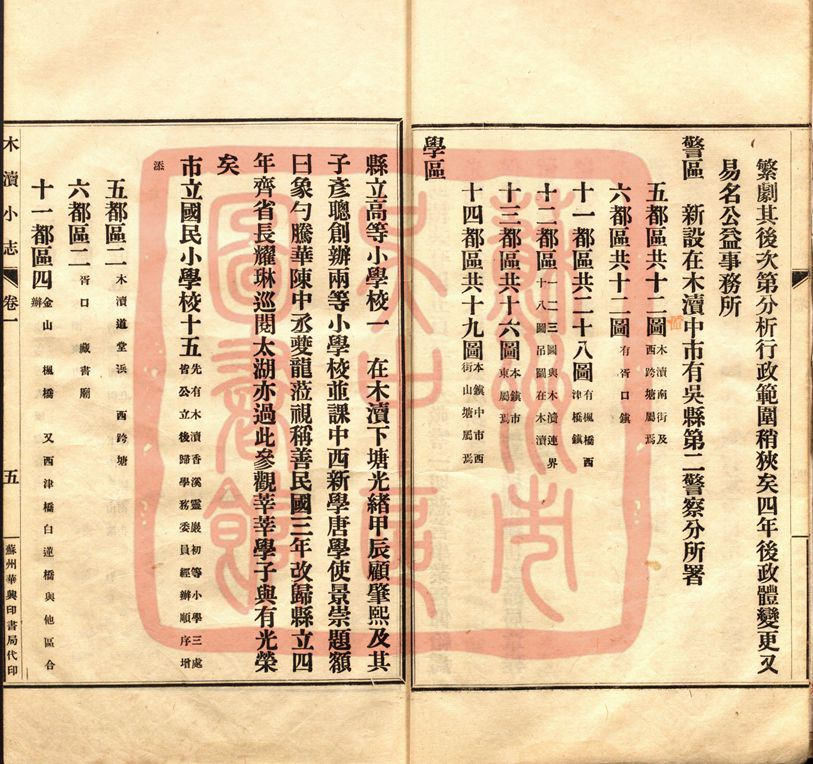 繁劇其後次第分析行政範圍稍狹矣四年後政體變更又
易名公益事務所
警區　新設在木瀆中市有吳縣第二警察分所署
五都區共十二圖木瀆南街及
西跨塘屬焉
六都區共十二圖有胥口鎮
十一都區共二十八圖有楓橋西
津橋鎮
十二都區一二三圖與木瀆連界
十八圖吊圖在木瀆
十三都區共十六圖本鎮市
東屬焉
十四都區共十九圖本鎮中市西
街山塘屬焉
學區
縣立高等小學校一　在木瀆下塘光緒甲辰顧肇熙及其
子彥聰創辦兩等小學校並課中西新學唐學使景崇題額
曰象勺騰華陳中丞夔龍蒞視稱善民國三年改歸縣立四
年齊省長耀琳巡閱太湖亦過此參觀莘莘學子與有光榮
矣
市立國民小學校十五先有木瀆香溪靈巖初等小學三處
皆公立後歸學務委員經辦順序增
添
五都區二木瀆道堂浜　西跨塘
六都區二胥口　藏書廟
十一都區四金山　楓橋　又西津橋白蓮橋與他區合
辦
木瀆小志
卷一
五
蘇州華興印書局代印
蘇州市吳中區圖書館